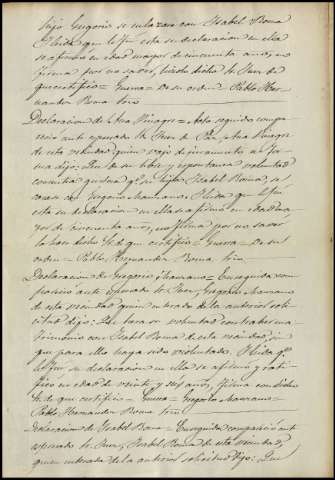 hijo Gregorio se enlazara con Isabel Roma
Leida que le fue esta su declaracion en ella
se afirmó en edad mayor de cincuenta años, no
firma por no saber, hizolo dicho Sr Juez de
que certifico = Guerra = De su orden = Pablo Her-
nandez Roma Srio
Declaracion de Ana Vinagre = Acto seguido compa-
recio ante espresado Sr Juez de Paz, Ana Vinagre
de esta vecindad quien bajo de juramento en for-
ma dijo: Que de su libre y espontanea voluntad
consentia que su hija Isabel Roma, se
case con Gregorio Manzano, Leida que le fue
esta su declaracion en ella se afirmó en edad ma-
yor de cincuenta años, no firma por no saber
lo hace dicho Sr de que certifico = Guerra = De su
orden = Pablo Hernandez Roma Srio
Declaracion de Gregorio Manzano = Enseguida com-
parecio ante Espresado Sr Juez, Gregorio Manzano
de esta vecindad quien enterado de la anterior soli-
citud dijo: Que hara su voluntad contraher ma-
trimonio con Isabel Roma de esta vecindad sin
que para ello haya sido violentado. Leida que
le fue su declaracion en ella se afirmó y ratifi-
co en edad de veinte y seis años, firma con dicho
Sr de que certifico = Guerra = Gregorio Manzano =
Pablo Hernandez Roma Srio
Declaracion de Isabel Roma = Enseguida compareció ante
espresado Sr Juez, Isabel Roma de esta vecindad,
quien enterada de la anterior solicitud dijo: Que